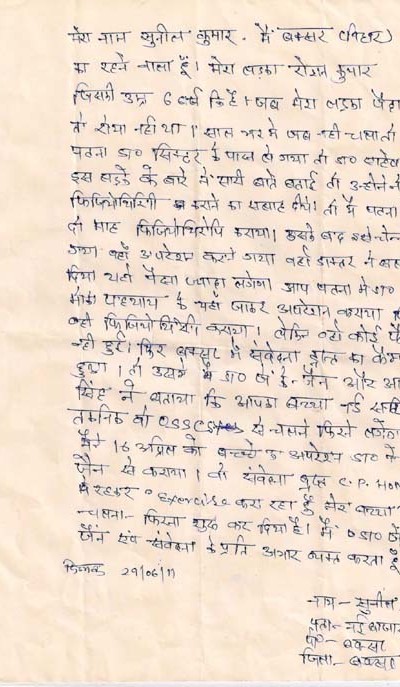 मेरा नाम सुनील कुमार. मैं बक्सर (बिहार)
का रहने वाला हूँ। मेरा लड़का रोशन कुमार
जिसकी उम्र 6 वर्ष कि है। जब मेरा लड़का पैदा
तो रोया नही था। साल भर मे जब नही चला तो
पटना डा० के पास ले गया तो डा०
इस लड़के के बारे मे सारी बाते बताई तो उन्होने
फिजियोथिरेपी कराने का सलाह दीये। तो मै पटना
दो माह फिजियोथिरेपि कराया। उसके बाद
गया वहाँ अपरेशन कराने गया वहाँ डाक्टर ने
दिया यहाँ पैसा ज्यादा लगेगा आप पटना मे डा०
के यहाँ जाकर अपरेशन कराया
वहाँ फिजियोथिरेपी कराया। लेकिन वहाँ कोई
नही हुई। फिर बक्सर मे संवेदना ट्रस्ट का
हुआ। तो उसमे मै डा० जे० के० जैन और
सिंह ने बताया कि आपका बच्चा नई
तकनिक से चलने फिरने लगेगा
मैने 16 अप्रिल को बच्चे का अपरेशन डा०
जैन से कराया। तो संवेदना ट्रस्ट C.P. HOM
मे रहकर Exercise करा रहा हूँ मेरा बच्चा
चलना-फिरना शुरू कर दिया है। मैं डा०
जैन एवं संवेदना के प्रति आभार व्यक्त करता हूँ
दिनांक 29/06/11
नाम- सुनील
पता- नई बाजार
पो०- बक्सर
जिला- बक्सर